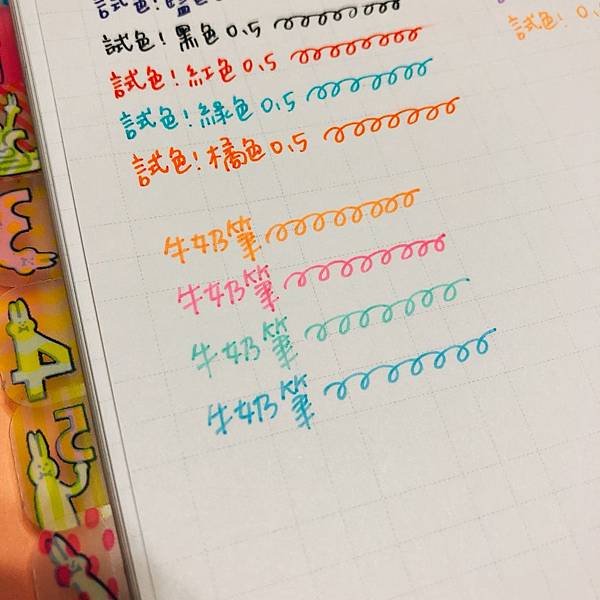 試色!藍色0.5
試色!黑色0.5
試色!紅色0.5
試色!綠色0.5
試色!橘色0.5
牛奶筆
牛奶筆
牛奶筆
牛奶筆
試色!0.
3
4
5